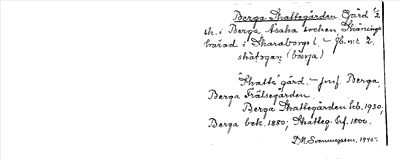 Berga Skattegården Gård 1/2
sk. i Berga, Åsaka socken, Skånings
härad i Skaraborgs l. – Jb. nr 2.
skàtəgan (bærja)
"Skatte"gård. – Jmf. Berga,
Berga Frälsegården.
Berga Skattegården beb. 1930,
Berga bek. 1880; Skatteg. lf. 1800.
1940.